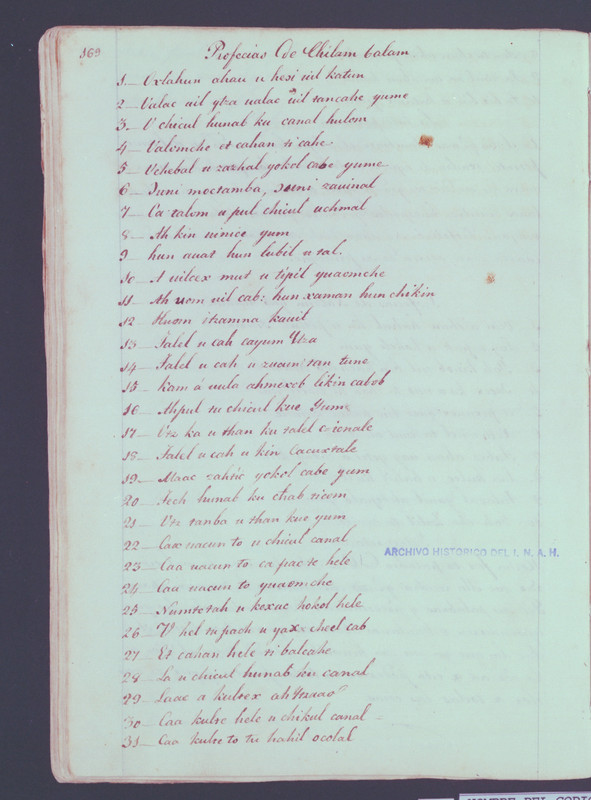 169
Profecias De Chilam balam
1— Oxlahun ahau u hesi uil katun
2— Valac uil ytza ualac uil tancahe yume
3— V chicul hunab ku canal hulom
4— Valomche et cahan ti cahe
5— Vchebal u zazhal yokol cabe yume
6— moctamba, zauinal
7— Ca talom u pul chicul uchmal
8— Ah kin nimte yum
9— hun auat hun lubil u tal.
10— A uilcex mut u tipil yuaomche
11— Ah uom uil cab: hun xaman hun chikin
12— Huom itzamna kauil
13— Talel u cah cayum Ytza
14— Talel u cah u zucun tan tune
15— Kam á uula ahmexob likin cabob
16— Ahpul tu chicul kue Yum
17— Vtz ka u than ku talel
18— Talel u cah u kin cacuxtale
19— Maac zahtic yokol cabe yum
20— Tech hunab ku chab ticem
21— Vtz tanba u than kue yum
22— Cax uacun to u chicul canal
23— Caa uacun to ca pacte hele
24— Caa uacun to yuaomche
25— Numtetah u kexuc hokol hele
26— V hel tu pach u yax cheel cab
27— Et cahan hele ti balcahe
28— La u chicul hunab ku canal
29— Laac a kultex ah Ytzaao
30— Caa kulte hele u chikul canal
31— Caa kulte to tu hahil ocolal
ARCHIVO HISTORICO DEL I. N. A. H.